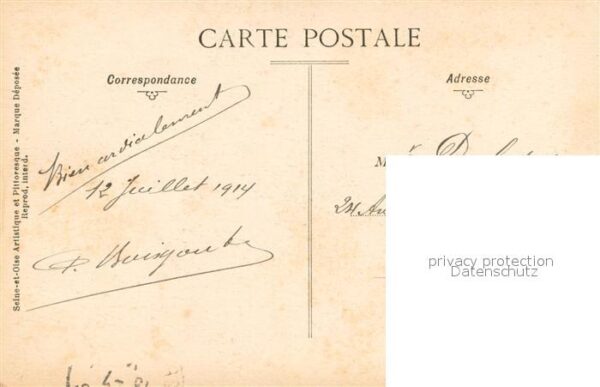 CARTE POSTALE
Correspondance
Adresse
Seine-et-Oise Artistique et Pittoresque - Marque Déposée
Reprod. Interd.
Bien cordialement
12 Juillet 1914
P.
M
24 Au
privacy protection
Datenschutz